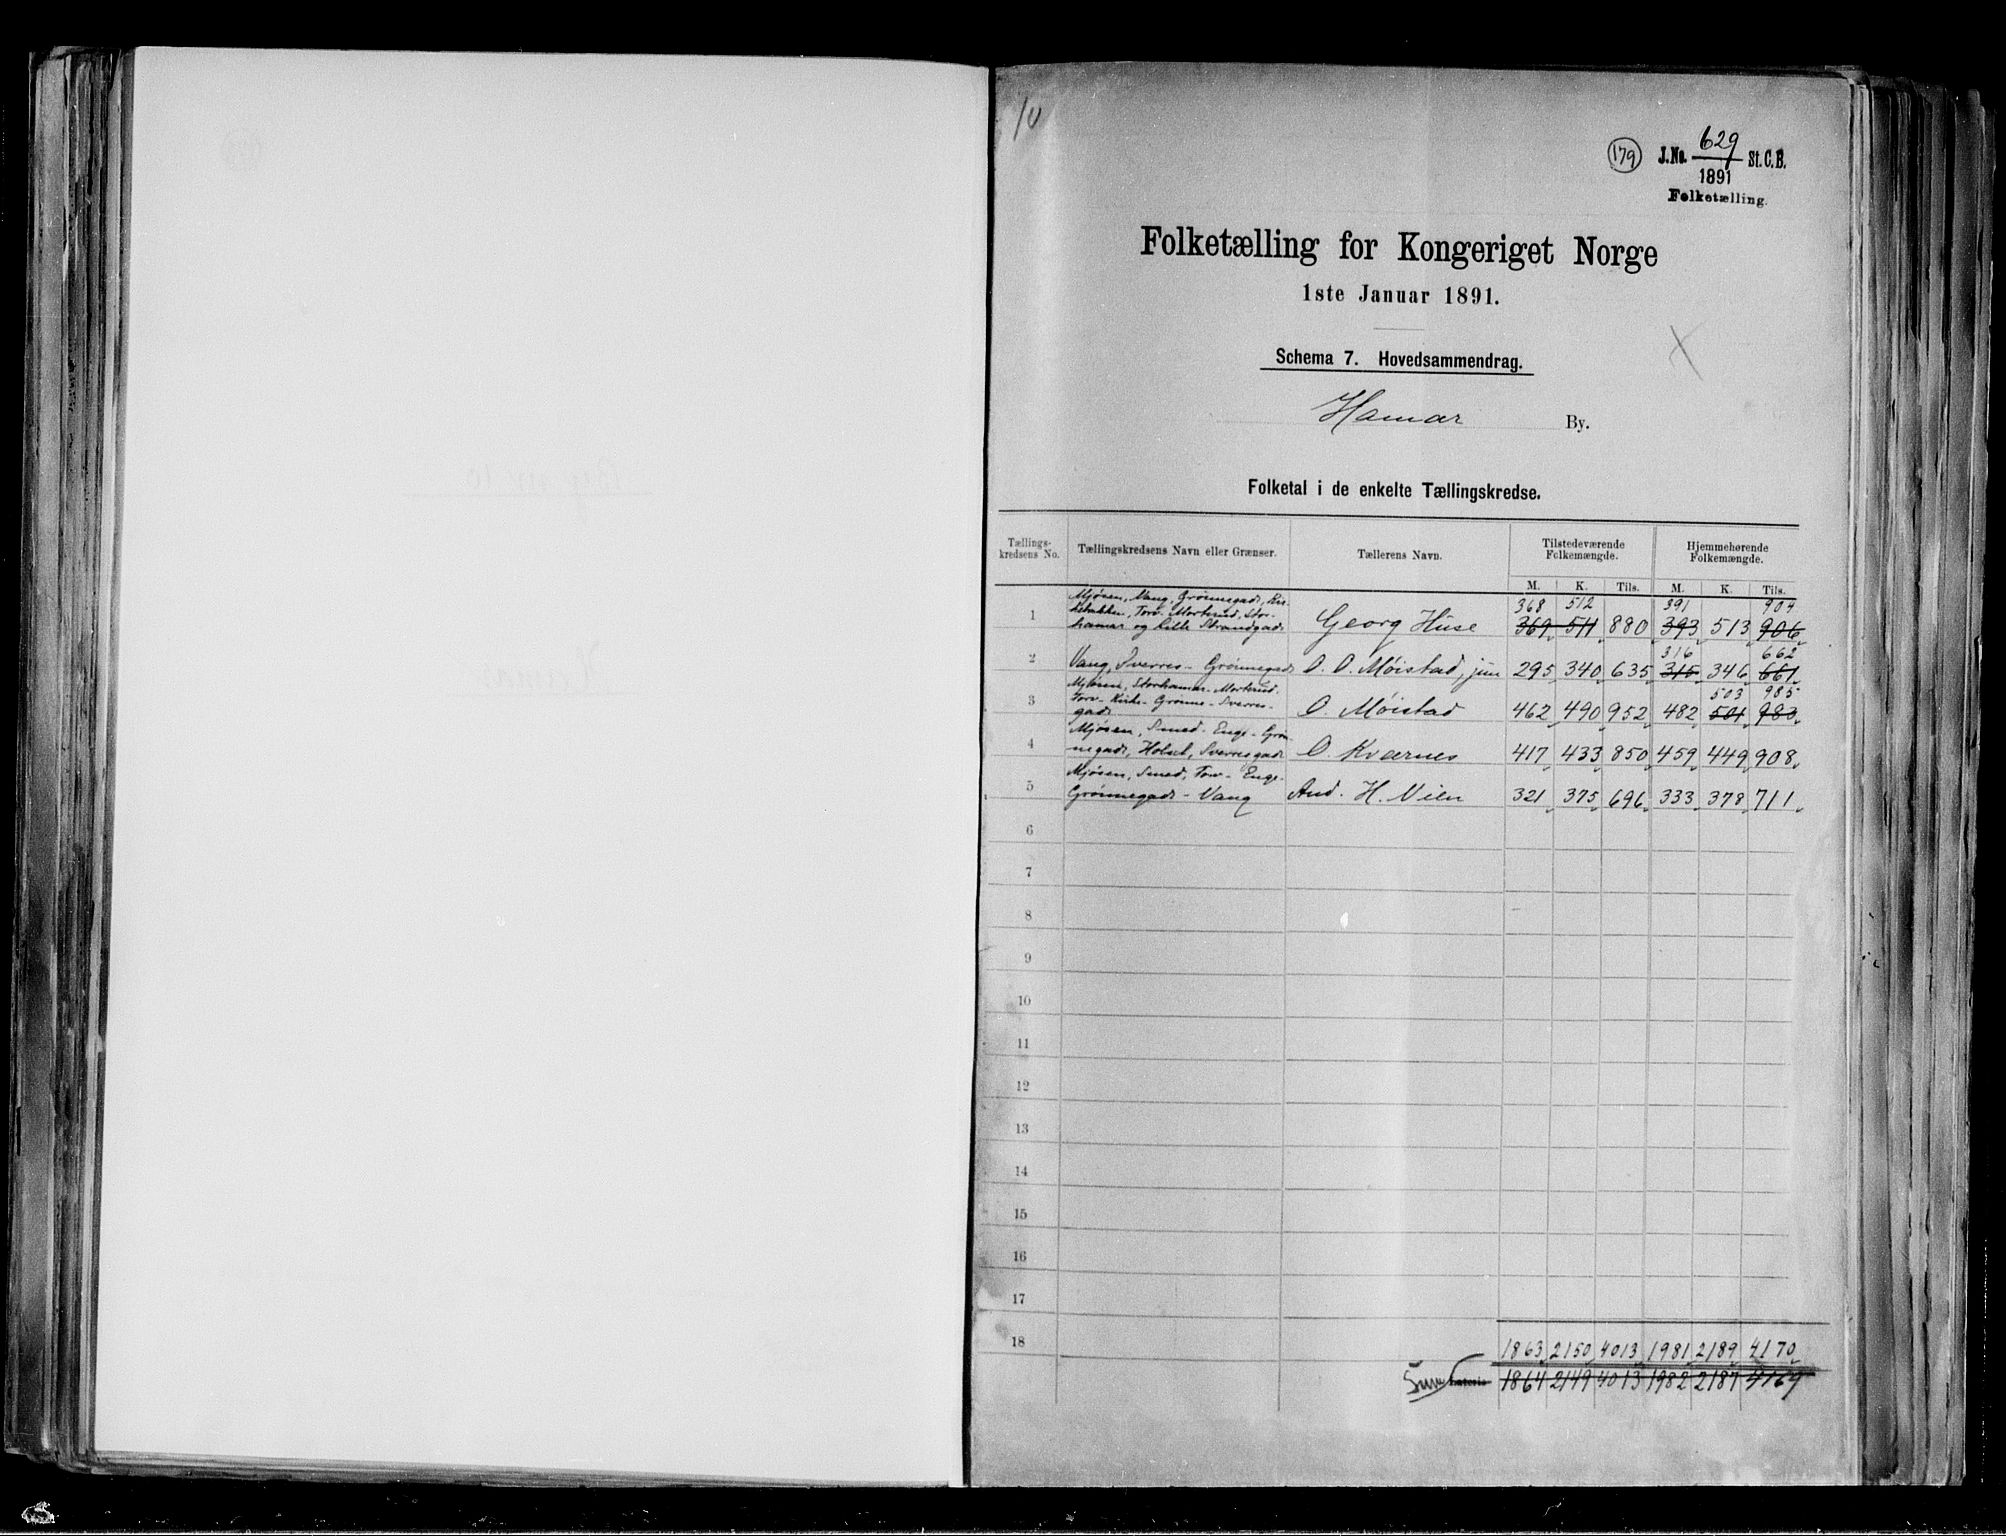 10
179
J.No. 629 St. C. B.
1891
Folketælling.
Folketælling for Kongeriget Norge
1ste Januar 1891.
Schema 7. Hovedsammendrag.
Hamar By.
Folketal i de enkelte Tællingskredse.
Tællings-kredsens No. Tællingskredsens Navn eller Grænser. Tællerens Navn. Tilstedeværende Folkemængde. Hjemmehørende Folkemængde.
M. K. Tils. M. K. Tils.
Mjøsen, Vang, Grönnegade, Kir-
368 512 391 904
1 kebakken, Torv- Morterud, Stor-
hamar og lille Strandgade Georg Huse 369 511 880 393 513 906
316 662
2 Vang, Sverres- Grönnegade O. O. Møistad, jun 295 340 635 315 346 661
Mjøsen, Storhamar- Morterud-
503 985
3 Torv- Kirke- Grönne- Sverres-
gade O. Møistad 462 490 952 482 501 983
Mjøsen, Smed- Enge- Grön-
4 negade, Holset, Sverresgade O. Kværnes 417 433 850 459 449 908
Mjøsen, Smed, Torv- Enge-
5 Grönnegade - Vang And. H. Vien 321 375 696 333 378 711
6
7
8
9
10
11
12
13
14
15
16
17
18
1863 2150 4013 1981 2189 4170
Sum 1864 2149 4013 1982 2187 4169